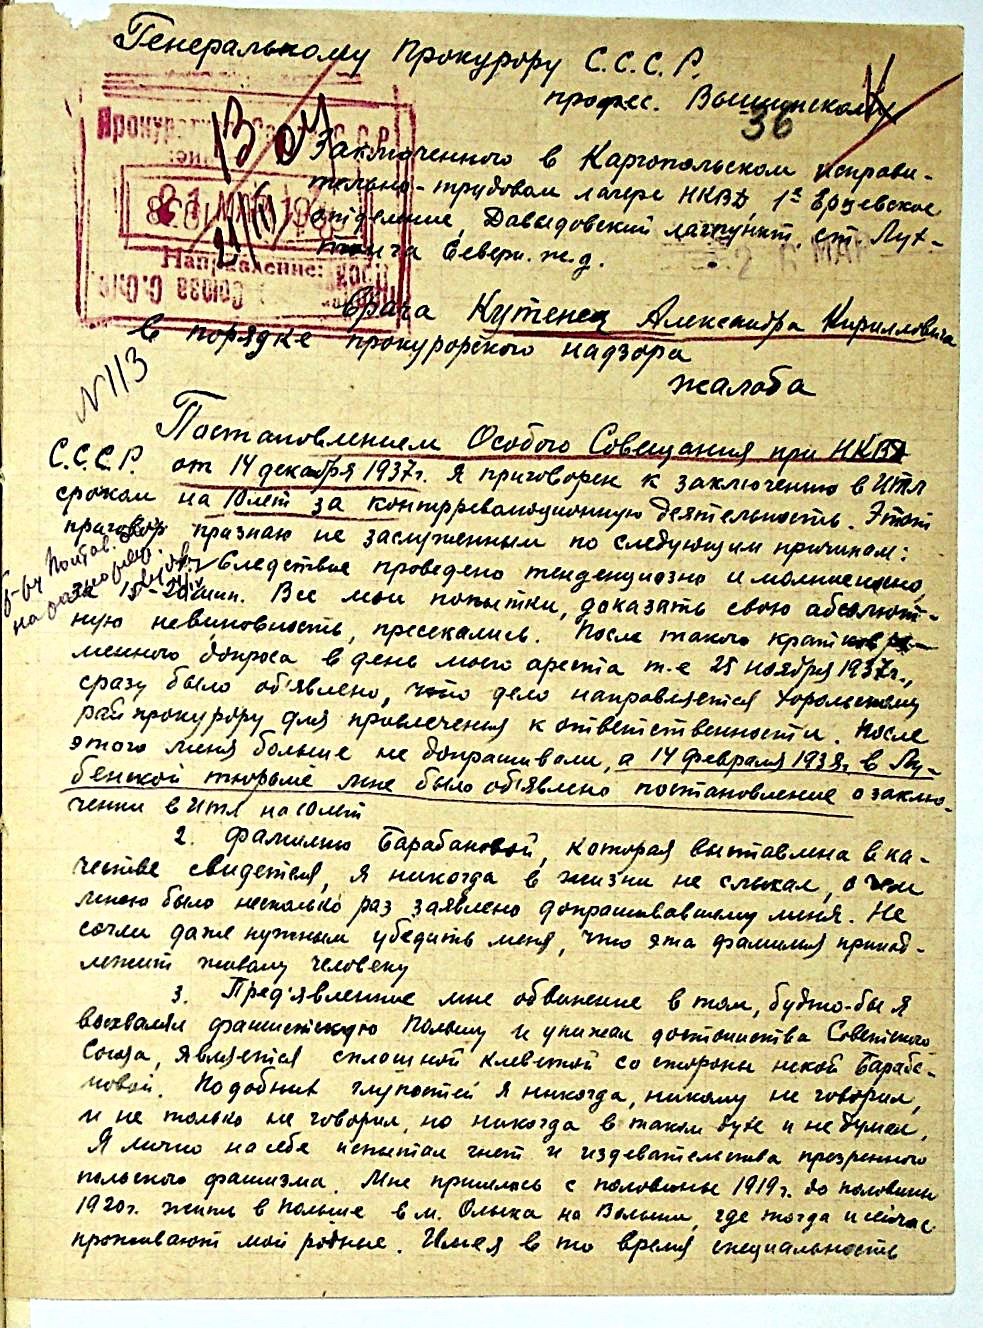 Генеральному Прокурору С.С.С.Р.
профес. Вышинскому
36
Прокуратура Союза С.С.Р.
13
Заключенного в Каргопольском исправи-
тельно-трудовом лагере НКВД, 1е Ерцевское
отделение, Давыдовский лагпункт. ст. Лух-
тонга Северн. ж.д.
26 МАР
Направление:
врача Кутенец Александра Кирилловича
в порядке прокурорского надзора
жалоба
N 113
Постановлением Особого Совещания при НКВД
С.С.С.Р. от 14 декабря 1937г. я приговорен к заключению в ИТЛ
сроком на 10 лет за контрреволюционную деятельность. Этот
приговор признаю не заслуженным по следующим причинам:
Следствие проведено тенденциозно и молниеносно,
за 15-20 мин. Все мои попытки, доказать свою абсолют-
ную невиновность, пресекались. После такого кратковре-
менного допроса в день моего ареста т-е 25 ноября 1937г.,
сразу было об'явлено, что дело направляется Хорольскому
райпрокурору для привлечения к ответственности. После
этого меня больше не допрашивали, а 14 февраля 1938г. в Лу-
бенской тюрьме мне было об'явлено постановление о заклю-
чении в ИТЛ на 10 лет
2. Фамилию Барабановой, которая выставлена в ка-
честве свидетеля, я никогда в жизни не слыхал, о чем
мною было несколько раз заявлено допрашивавшему меня. Не
сочли даже нужным убедить меня, что эта фамилия принад-
лежит живому человеку
3. Пред'явленное мне обвинение в том, будто-бы я
восхвалял фашистскую Польшу и унижал достоинства Советского
Союза, является сплошной клеветой со стороны некой Барабо-
новой. Подобных глупостей я никогда, никому не говорил,
и не только не говорил, но никогда в таком духе и не думал,
Я лично на себе испытал гнет и издевательства презренного
польского фашизма. Мне пришлось с половины 1919г. до половины
1920г. жить в Польше в м. Олыка на Волыни, где тогда и сейчас
проживают мои родные. Имея в то время специальность